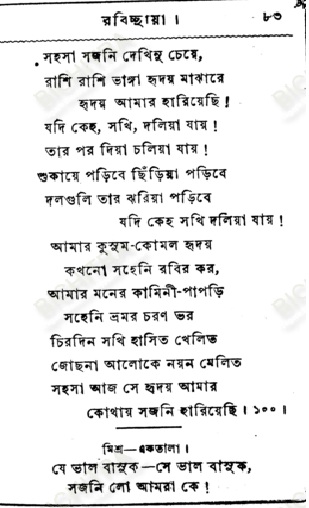 রবিচ্ছায়া।
৮৩
সহসা সজনি দেখিনু চেয়ে,
রাশি রাশি ভাঙ্গা হৃদয় মাঝারে
হৃদয় আমার হারিয়েছি!
যদি কেহ, সখি, দলিয়া যায়!
তার পর দিয়া চলিয়া যায়!
শুকায়ে পড়িবে ছিঁড়িয়া পড়িবে
দলগুলি তার ঝরিয়া পড়িবে
যদি কেহ সখি দলিয়া যায়!
আমার কুসুম-কোমল হৃদয়
কখনো সহেনি রবির কর,
আমার মনের কামিনী-পাপড়ি
সহেনি ভ্রমর চরণ ভর
চিরদিন সখি হাসিত খেলিত
জোছনা আলোকে নয়ন মেলিত
সহসা আজ সে হৃদয় আমার
কোথায় সজনি হারিয়েছি। ১০০।
মিশ্র—একতালা।
যে ভাল বাসুক—সে ভাল বাসুক,
সজনি লো আমরা কে!